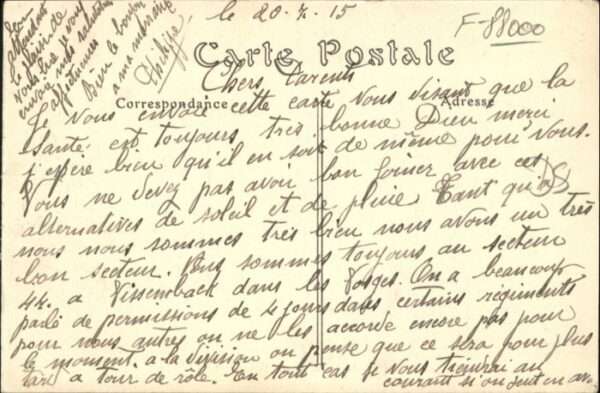 le 20-7-15
F-88000
Carte Postale
Correspondance
Adresse
Chers Parents
Je vous envoie cette carte vous disant que la
santé est toujours très bonne Dieu merci
j'espère bien qu'il en soit de même pour vous.
Vous ne devez pas avoir bon foiner avec ces
alternatives de soleil et de pluie Tant qu'à
nous nous sommes très bien nous avons un très
bon secteur. Nous sommes toujours au secteur
44. a Vissemback dans les Vosges. On a beaucoup
parlé de permissions de 4 jours dans certains régiments
pour nous autres on ne les accorde encore pas pour
le moment. a la division on pense que ce sera pour plus
tard a tour de rôle. En tout cas je vous tiendrai au
courant si on peut en av.
En
attendant
le plaisir de
vous lire je vous
envoie mes salutations
affectueuses
Bien le bonjour
a ma marraine
Philippe